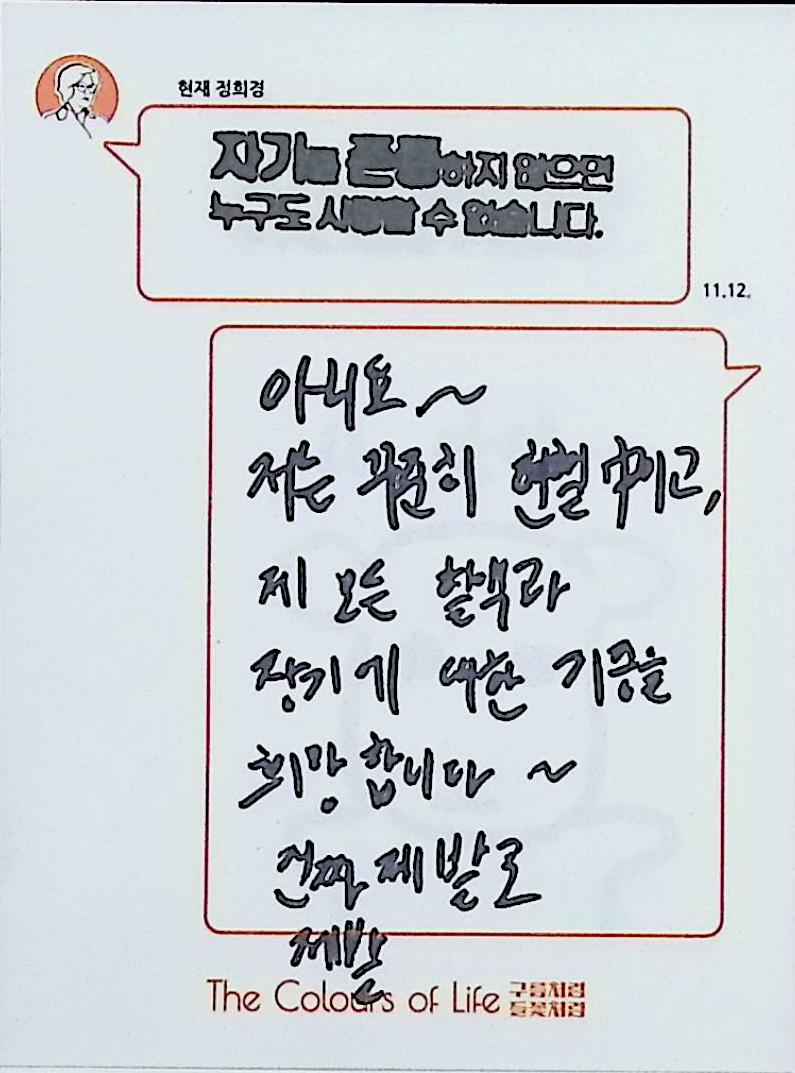 현재 정희경
자기를 존중하지 않으면
누구도 사랑할 수 없습니다.
11.12.
아니요~
저는 꾸준히 헌혈 中이고,
제 모든 혈액과
장기에 대한 기증을
희망합니다 ~
진짜 제발로
제발
The Colours of Life 구름처럼
들꽃처럼